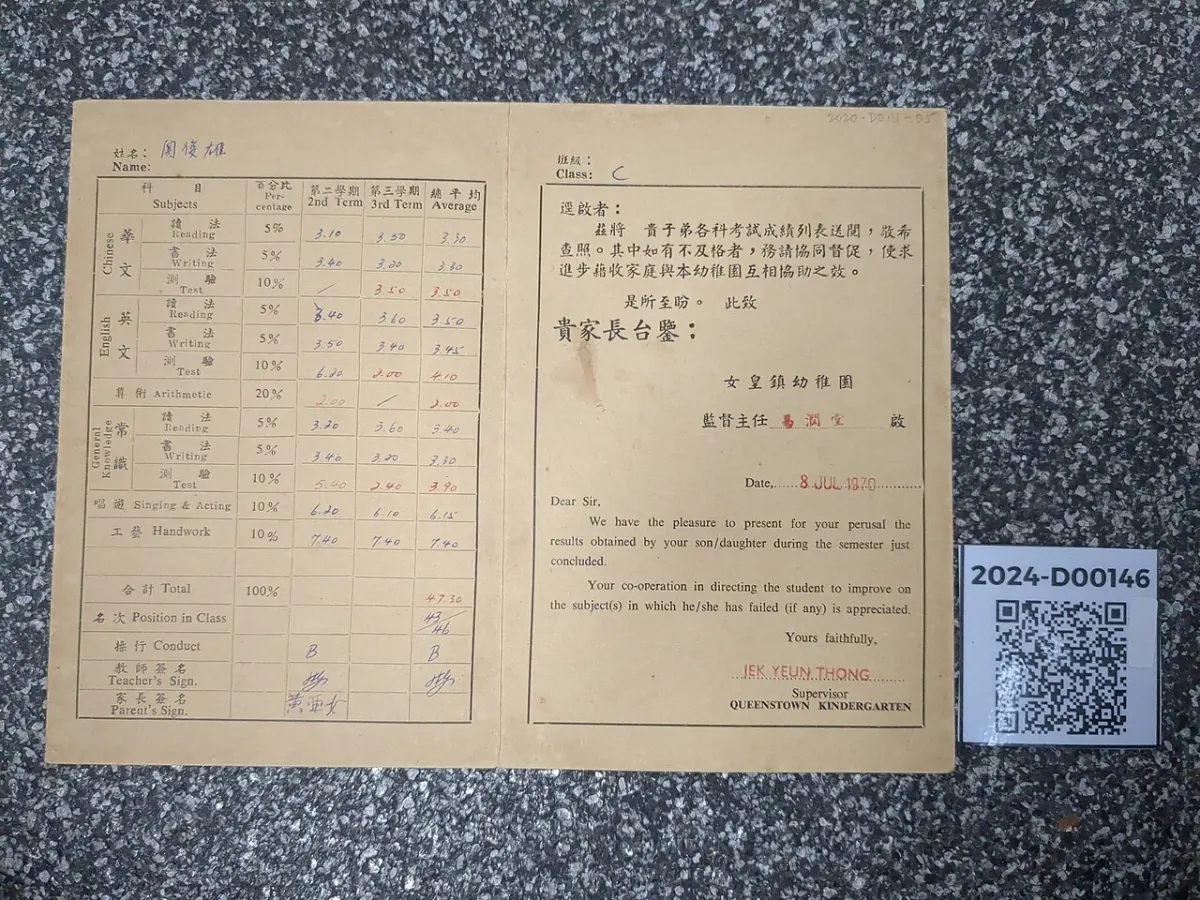 姓名： 関俊雄
Name:
科 目 百分比 第二學期 第三學期 總平均
Subjects Per-centage 2nd Term 3rd Term Average
華文 Chinese
讀法 Reading 5% 3.10 3.50 3.30
書法 Writing 5% 3.40 3.20 3.30
測驗 Test 10% / 3.50 3.50
英文 English
讀法 Reading 5% 3.40 3.60 3.50
書法 Writing 5% 3.50 3.40 3.45
測驗 Test 10% 6.20 2.00 4.10
算術 Arithmetic 20% 2.00 / 2.00
常識 General Knowledge
讀法 Reading 5% 3.20 3.60 3.40
書法 Writing 5% 3.40 3.20 3.30
測驗 Test 10% 5.40 2.40 3.90
唱遊 Singing & Acting 10% 6.20 6.10 6.15
工藝 Handwork 10% 7.40 7.40 7.40
合計 Total 100% 47.30
名次 Position in Class 43/46
操行 Conduct B B
教師簽名
Teacher's Sign.
家長簽名 黃亜女
Parent's Sign.
班級：
Class: C
逕啟者：
茲將 貴子弟各科考試成績列表送閱，敬希
查照。其中如有不及格者，務請協同督促，使求
進步藉收家庭與本幼稚園互相協助之效。
是所至盼。 此致
貴家長台鑒：
女皇鎮幼稚園
監督主任 易潤堂 啟
Date, 8 JUL 1970
Dear Sir,
We have the pleasure to present for your perusal the
results obtained by your son/daughter during the semester just
concluded.
Your co-operation in directing the student to improve on
the subject(s) in which he/she has failed (if any) is appreciated.
Yours faithfully,
JEK YEUN THONG
Supervisor
QUEENSTOWN KINDERGARTEN
2024-D00146